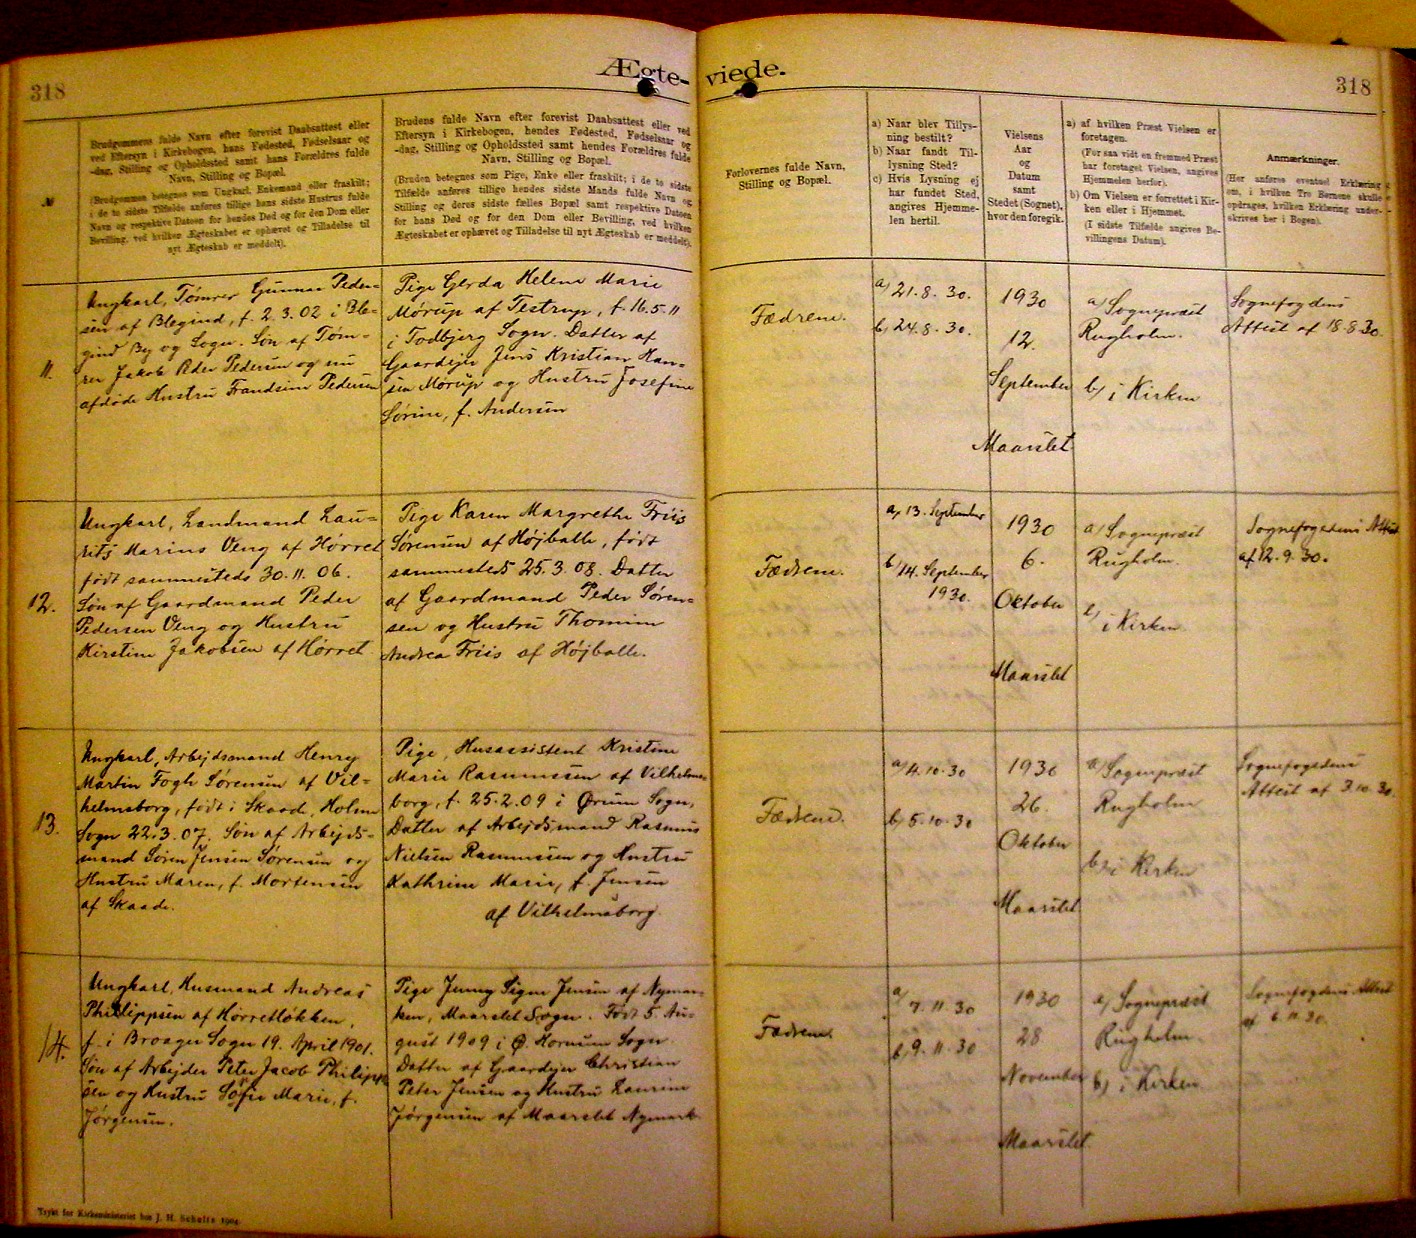 318
Ægte-
viede.
318
№
Brudgommens fulde Navn efter forevist Daabsattest eller
ved Eftersyn i Kirkebogen, hans Fødested, Fødselsaar og
-dag, Stilling og Opholdssted samt hans Forældres fulde
Navn, Stilling og Bopæl.
(Brudgommen betegnes som Ungkarl, Enkemand eller fraskilt;
i de to sidste Tilfælde anføres tillige hans sidste Hustrus fulde
Navn og respektive Datoen for hendes Død og for den Dom eller
Bevilling, ved hvilken Ægteskabet er ophævet og Tilladelse til
nyt Ægteskab er meddelt).
Brudens fulde Navn efter forevist Daabsattest eller ved
Eftersyn i Kirkebogen, hendes Fødested, Fødselsaar og
-dag, Stilling og Opholdssted samt hendes Forældres fulde
Navn, Stilling og Bopæl.
(Bruden betegnes som Pige, Enke eller fraskilt; i de to sidste
Tilfælde anføres tillige hendes sidste Mands fulde Navn og
Stilling og deres sidste fælles Bopæl samt respektive Datoen
for hans Død og for den Dom eller Bevilling, ved hvilken
Ægteskabet er ophævet og Tilladelse til nyt Ægteskab er meddelt).
Forlovernes fulde Navn,
Stilling og Bopæl.
a) Naar blev Tillys-
ning bestilt?
b) Naar fandt Til-
lysning Sted?
c) Hvis Lysning ej
har fundet Sted,
angives Hjemme-
len hertil.
Vielsens
Aar
og
Datum
samt
Stedet (Sognet),
hvor den foregik.
a) af hvilken Præst Vielsen er
foretagen.
(For saa vidt en fremmed Præst
har foretaget Vielsen, angives
Hjemmelen herfor).
b) Om Vielsen er forrettet i Kir-
ken eller i Hjemmet.
(I sidste Tilfælde angives Be-
villingens Datum).
Anmærkninger.
(Her anføres eventuel Erklæring
om, i hvilken Tro Børnene skulle
opdrages, hvilken Erklæring under-
skrives her i Bogen).
11.
Ungkarl, Tømrer Gunnar Peder-
sen af Blegind, f. 2.3.02 i Ble-
gind By og Sogn. Søn af Tøm-
rer Jakob Peder Pedersen og nu
afdøde Hustru Frandsine Pedersen
Pige Gerda Helene Marie
Mørup af Testrup, f. 16.5.11
i Todbjerg Sogn. Datter af
Gaardejer Jens Kristian Han-
sen Mørup og Hustru Josefine
Sørine, f. Andersen
Fædrene.
a) 21.8.30.
b) 24.8.30.
1930
12.
September
Maarslet
a) Sognepræst
Rugholm.
b) i Kirken
Sognefogdens
Attest af 18.8.30.
12.
Ungkarl, Landmand Lau-
ritz Marius Veng af Hørret
født sammesteds 30.11.06.
Søn af Gaardmand Peder
Pedersen Veng og Hustru
Kirstine Jakobsen af Hørret
Pige Karen Margrethe Friis
Sørensen af Højballe, født
sammesteds 25.3.08. Datter
af Gaardmand Peder Søren-
sen og Hustru Thomine
Andrea Friis af Højballe.
Fædrene.
a) 13. September
b) 14. September
1930.
1930
6.
Oktober
Maarslet
a) Sognepræst
Rugholm.
b) i Kirken
Sognefogdens Attest
af 12.9.30.
13.
Ungkarl, Arbejdsmand Henry
Martin Fogh Sørensen af Vil-
helmsborg, født i Skaade, Holme
Sogn 22.3.07. Søn af Arbejds-
mand Søren Jensen Sørensen og
Hustru Maren, f. Mortensen
af Skaade.
Pige, Husassistent Kristine
Marie Rasmussen af Vilhelms-
borg, f. 25.2.09 i Ørum Sogn,
Datter af Arbejdsmand Rasmus
Nielsen Rasmussen og Hustru
Kathrine Marie, f. Jensen
af Vilhelmsborg.
Fædrene.
a) 4.10.30
b) 5.10.30
1930
26.
Oktober
Maarslet
a) Sognepræst
Rugholm
b) i Kirken
Sognefogdens
Attest af 3.10.30.
14.
Ungkarl, Husmand Andreas
Philippsen af Hørretløkken,
f. i Broager Sogn 19. April 1901.
Søn af Arbejder Peter Jacob Philipp-
sen og Hustru Sofie Marie, f.
Jørgensen.
Pige Jenny Signe Jensen af Nymar-
ken, Maarslet Sogn. Født 5. Au-
gust 1909 i Ø. Hornum Sogn.
Datter af Gaardejer Christian
Peter Jensen og Hustru Laurine
Jørgensen af Maarslet Nymark.
Fædrene.
a) 7.11.30
b) 9.11.30
1930
28
November
Maarslet
a) Sognepræst
Rugholm.
b) i Kirken
Sognefogdens Attest
af 6.11.30.
Trykt for Kirkeministeriet hos J. H. Schultz 1904